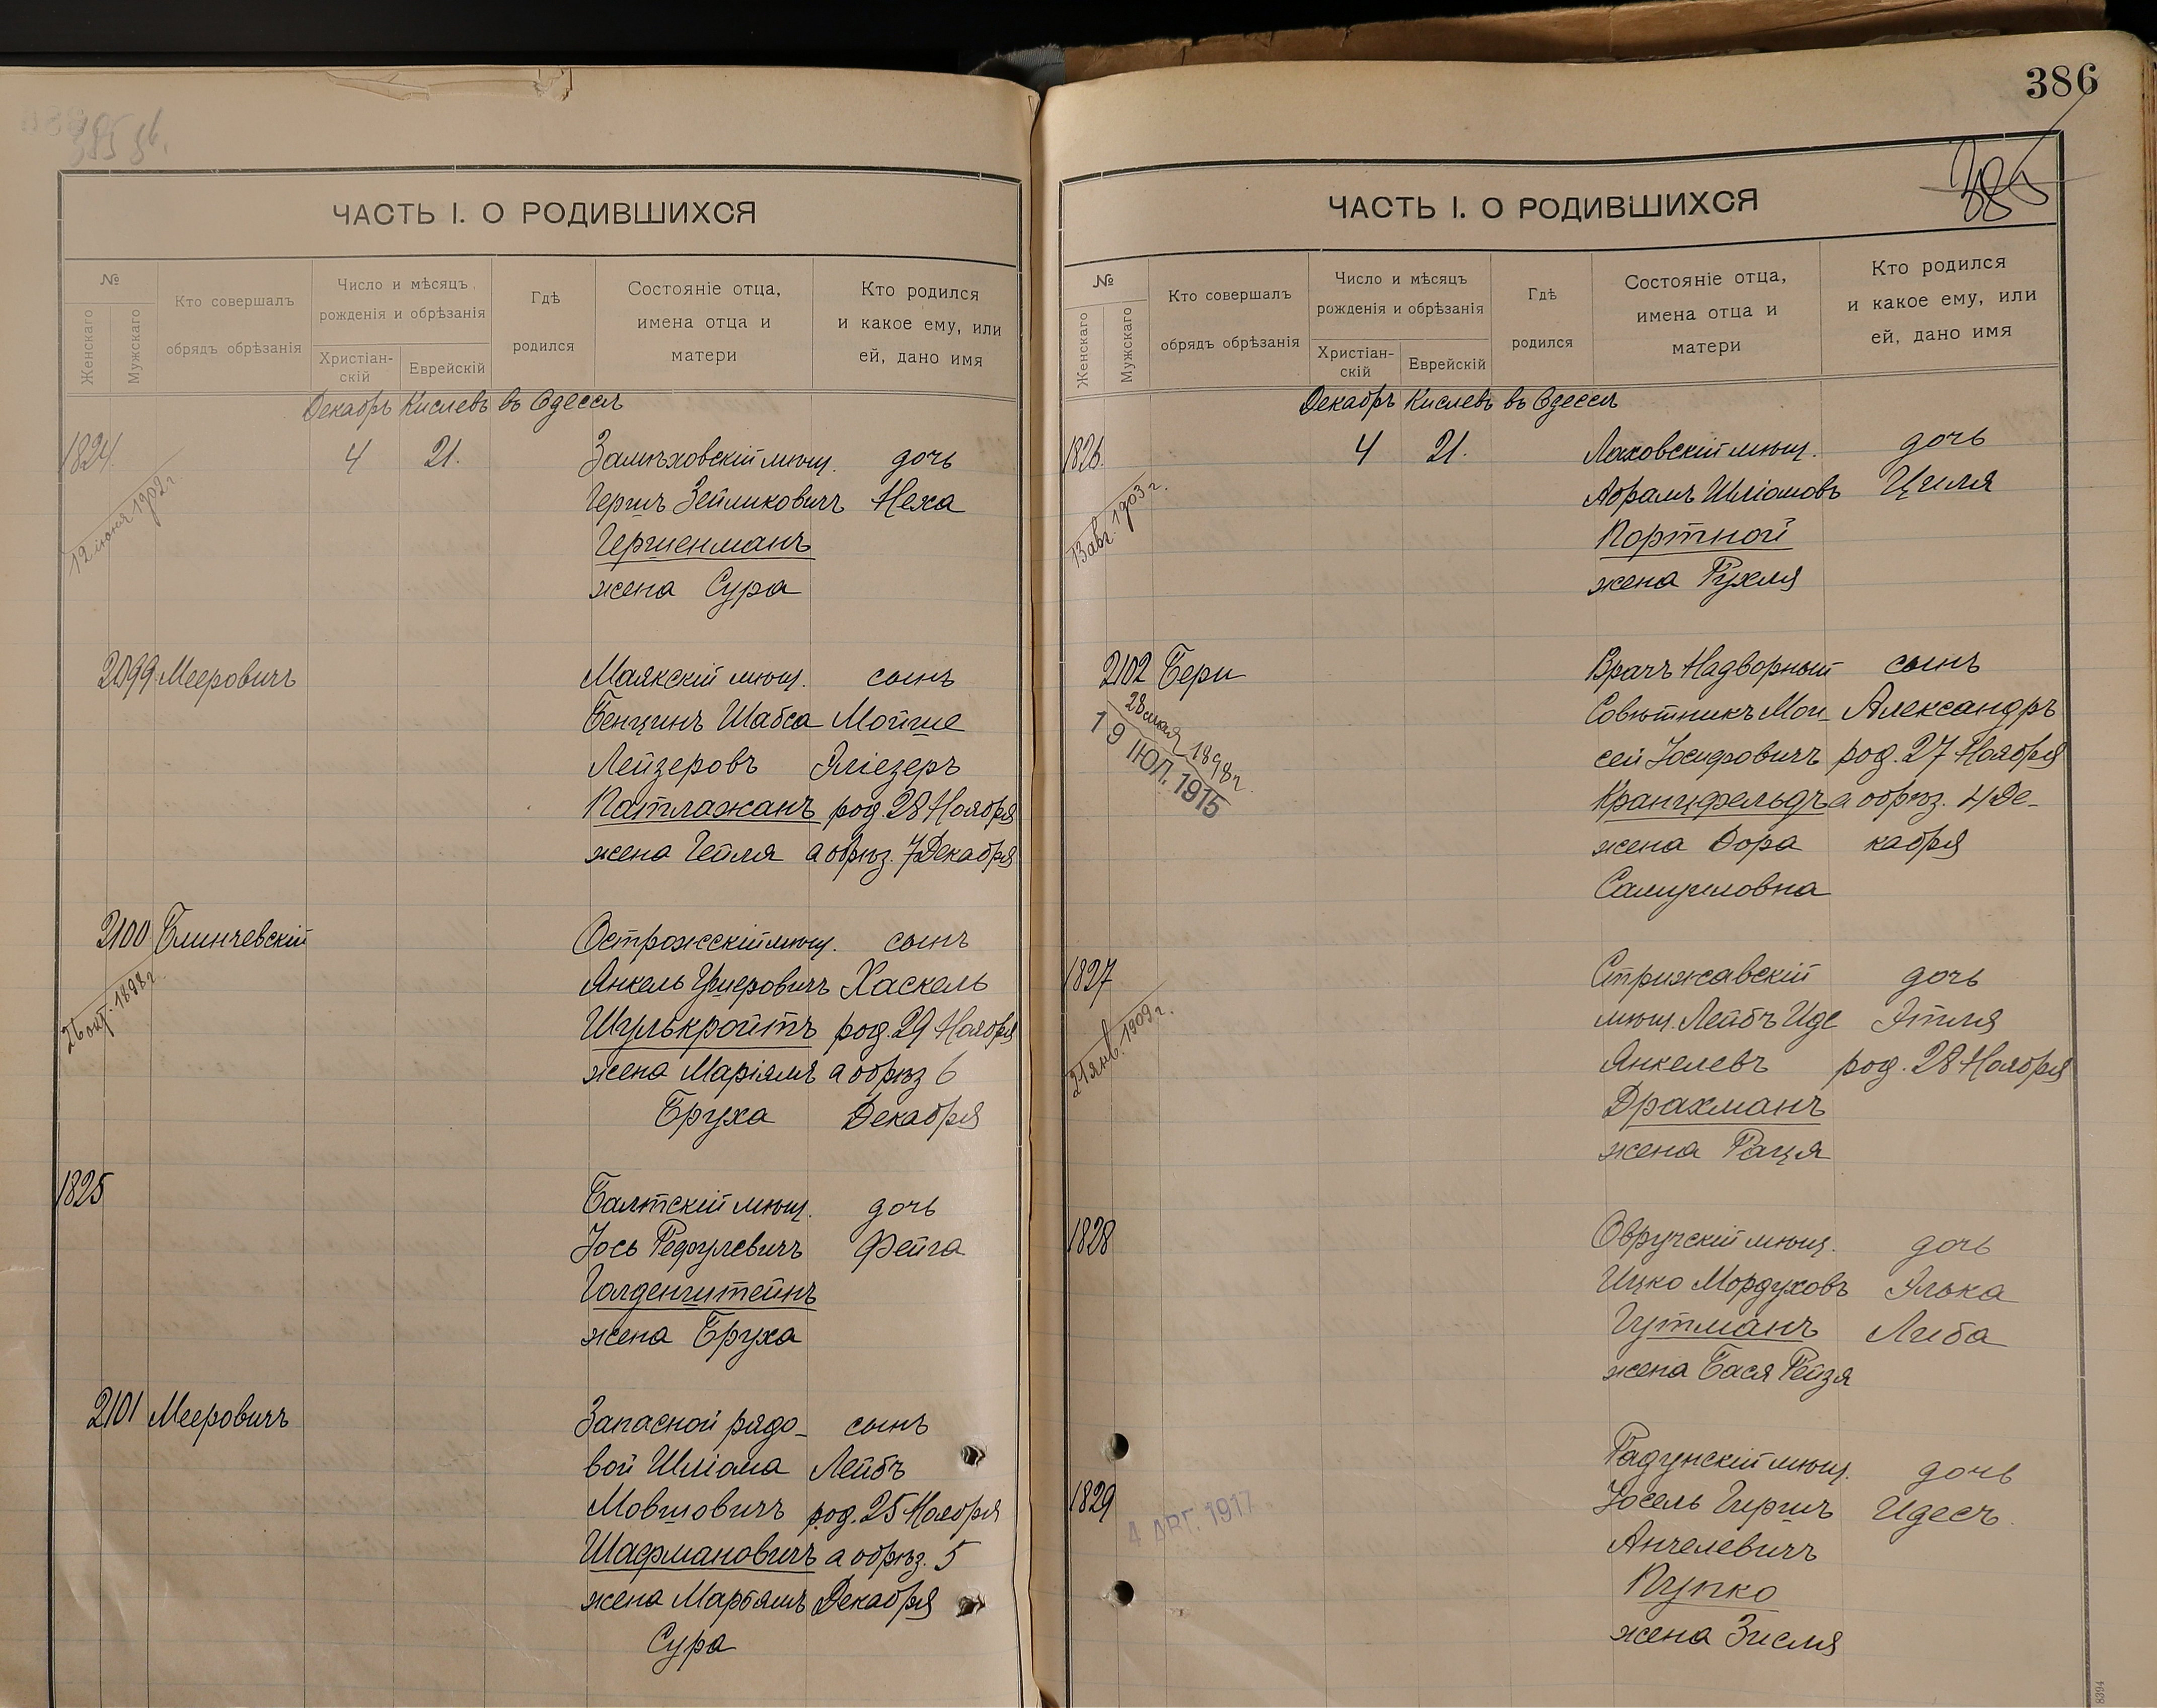 385 об.
ЧАСТЬ I. О РОДИВШИХСЯ
№
Женскаго
Мужскаго
Кто совершалъ
обрядъ обрѣзанія
Число и мѣсяцъ
рожденія и обрѣзанія
Христіан-
скій
Еврейскій
Гдѣ
родился
Состояніе отца,
имена отца и
матери
Кто родился
и какое ему, или
ей, дано имя
Декабрь Кислевъ въ Одессѣ
1824. 4 21. Замѣховскій мѣщ. дочь
12 іюня 1902 г.
Гершъ Зейликовичъ Неха
Гершенманъ
жена Сура
2099 Мееровичъ Маякскій мѣщ. сынъ
Бенцинъ Шабса Мойше
Лейзеровъ Эліезеръ
Патлажанъ род. 28 Ноября
жена Гейля а обрѣз. 7 Декабря
2100 Блинчевскій Острожскій мѣщ. сынъ
26 окт. 1898 г.
Янкель Ушеровичъ Хаскель
Шулькройтъ род. 29 Ноября
жена Маріямъ а обрѣз 6
Бруха Декабря
1825 Балтскій мѣщ. дочь
Іось Рефулевичъ Фейга
Голденштейнъ
жена Бруха
2101 Мееровичъ Запасной рядо-
сынъ
вой Шліома Лейбъ
Мовшовичъ род. 25 Ноября
Шафмановичъ а обрѣз. 5
жена Марьямъ Декабря
Сура
386
385
ЧАСТЬ I. О РОДИВШИХСЯ
№
Женскаго
Мужскаго
Кто совершалъ
обрядъ обрѣзанія
Число и мѣсяцъ
рожденія и обрѣзанія
Христіан-
скій
Еврейскій
Гдѣ
родился
Состояніе отца,
имена отца и
матери
Кто родился
и какое ему, или
ей, дано имя
Декабрь Кислевъ въ Одессѣ
1826. 4 21. Ляховскій мѣщ. дочь
13 авг. 1903 г.
Абрамъ Шліомовъ Циля
Портной
жена Рухля
2102 Бери Врачъ Надворный сынъ
28 мая 1898 г.
19 ІЮЛ. 1915
Совѣтникъ Мои- Александръ
сей Іосифовичъ род. 27 Ноября
Кранцфельдъ а обрѣз. 4 Де-
жена Дора кабря
Самуиловна
1827 Стрижавскій дочь
21 янв. 1909 г.
мѣщ. Лейбъ Иде Этля
Янкелевъ род. 28 Ноября
Драхманъ
жена Раця
1828 Овручскій мѣщ. дочь
Ицко Мордуховъ Элька
Гутманъ Либа
жена Бася Рейзя
1829 Радунскій мѣщ. дочь
4 АВГ. 1917
Іосель Гиршъ Идесъ.
Анчелевичъ
Пупко
жена Зисля
8394